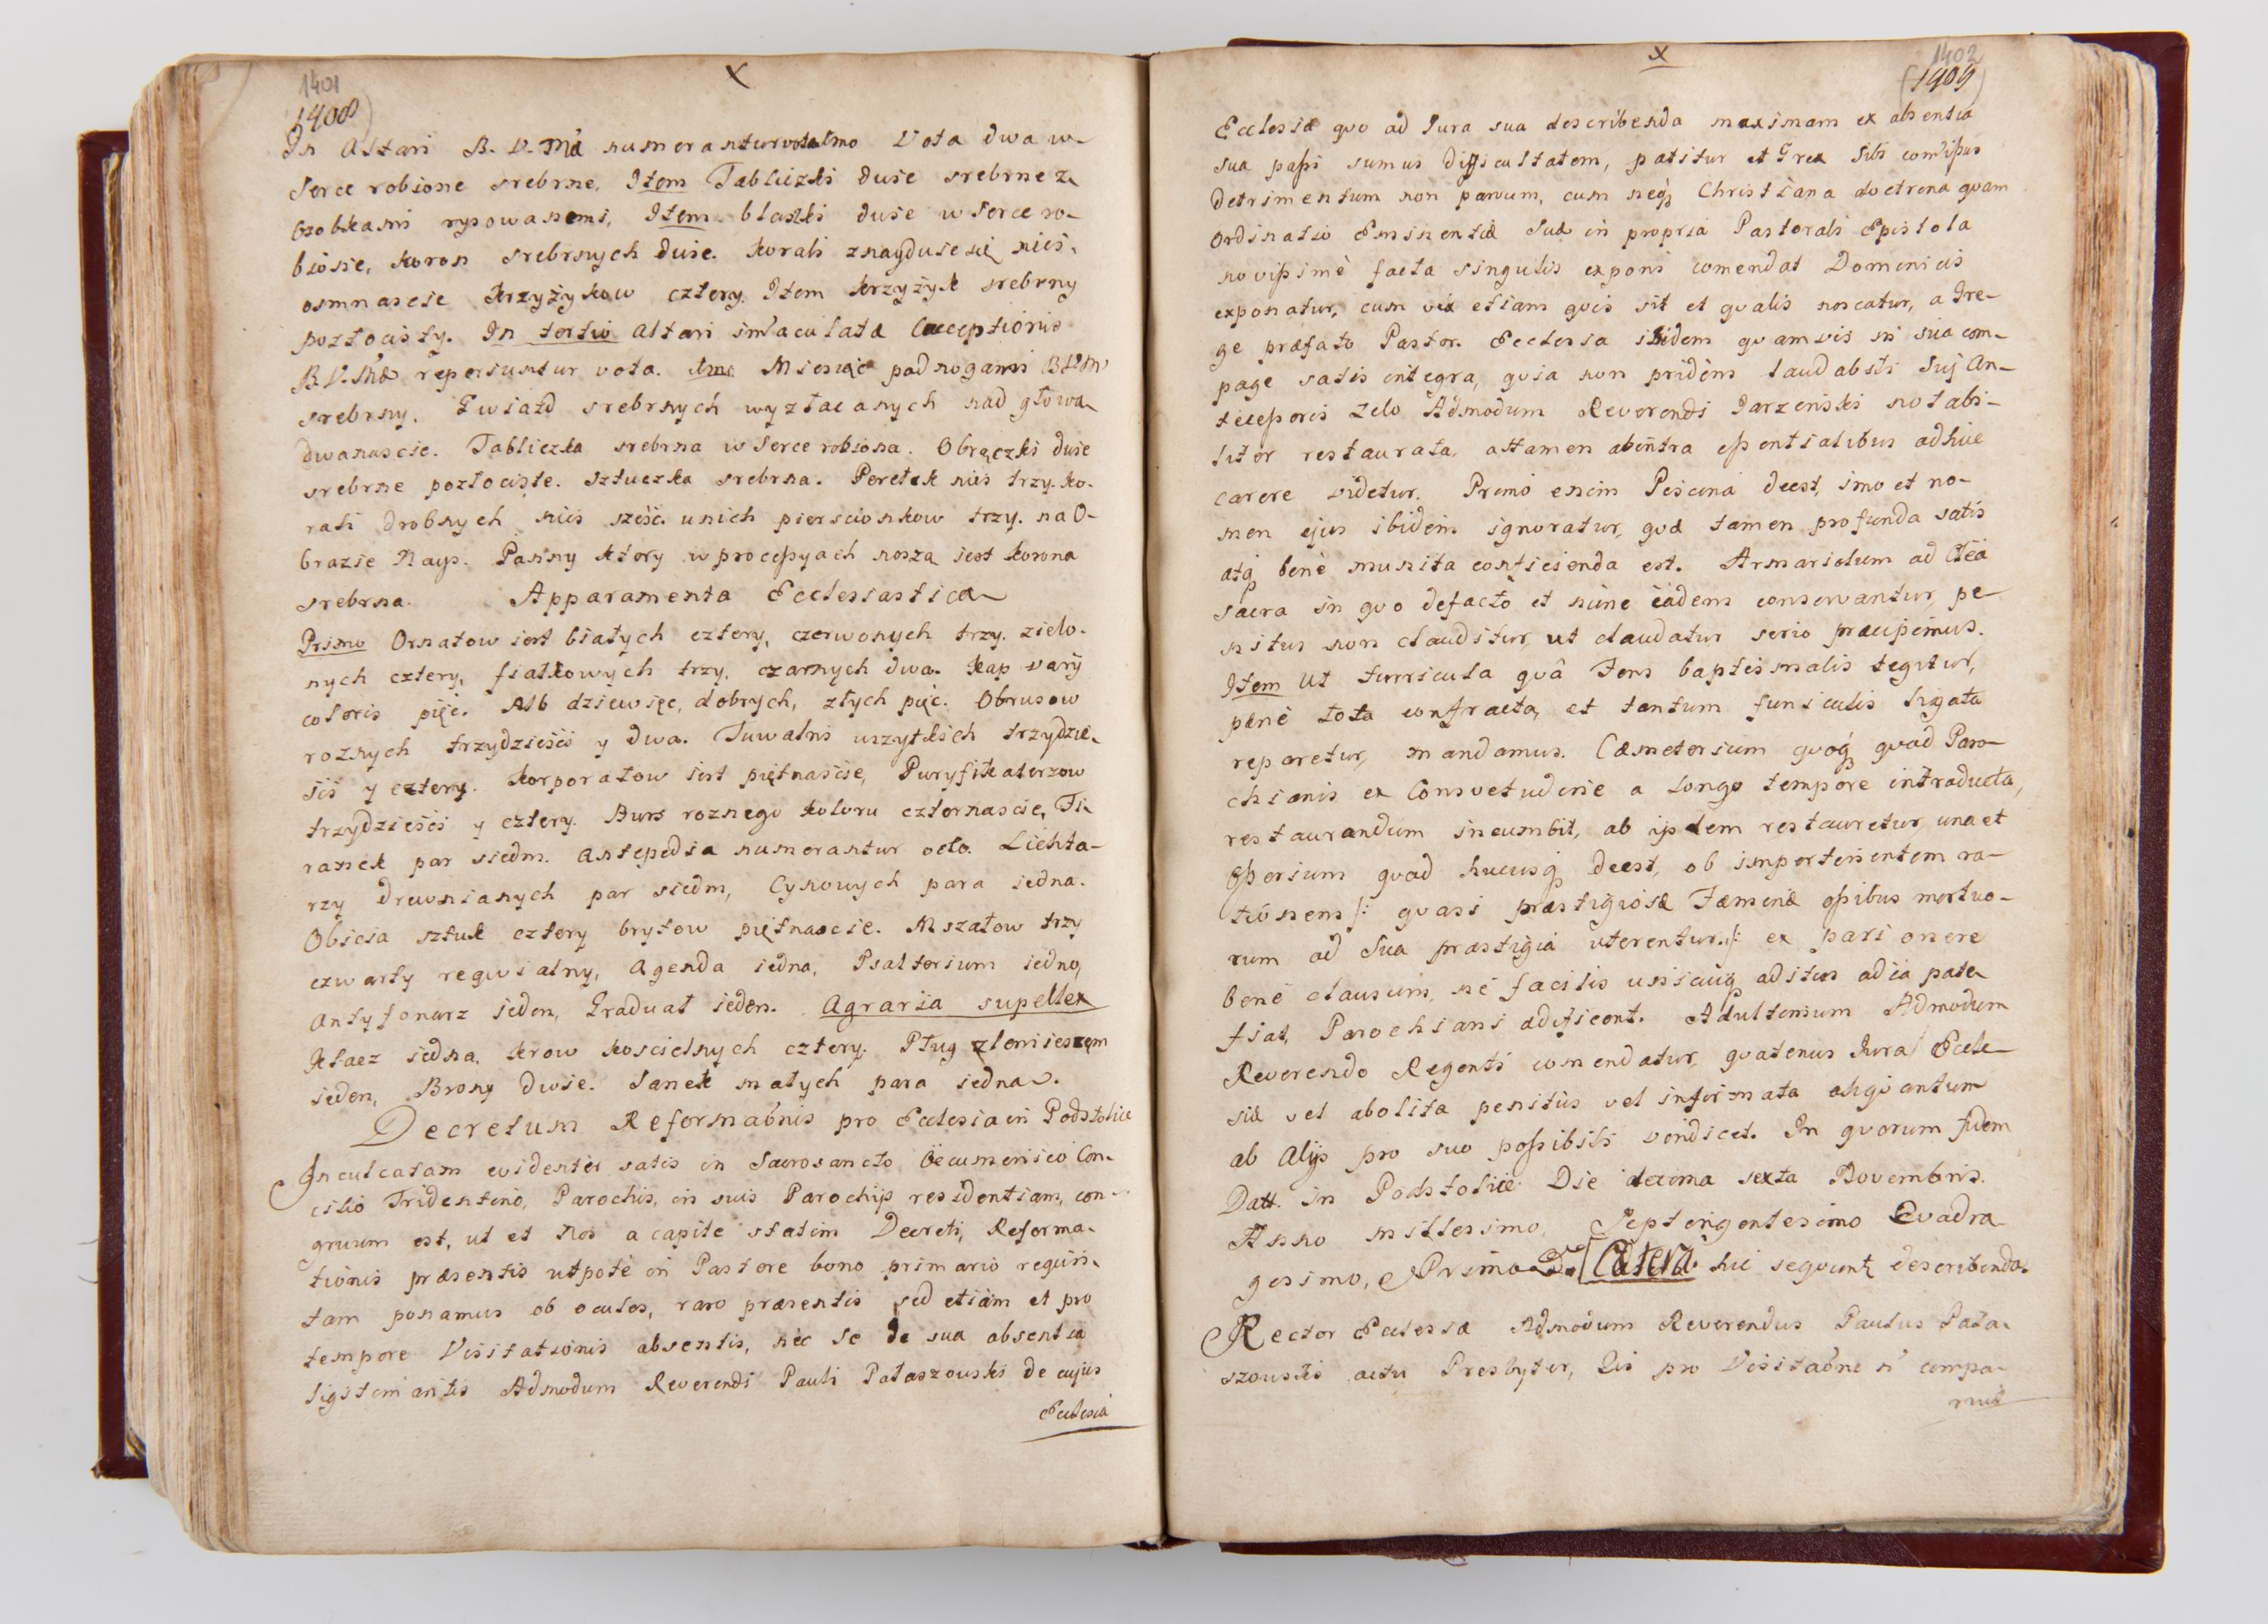 1401
1408
X
In Altari B. V. Mâ numerantur vota Imo Vota dwa w-
serce robione srebrne, Item Tabliczki dwie srebrne z
osobkami rysowanemi, Item blaszki dwie w serce ro-
bione, koron srebrnych dwie. korali znayduie się nici
osmnascie krzyżykow cztery. Item krzyżyk srebrny
pozłocisty. In tertio Altari imaculatæ Cõceptionis
B. V. Mæ reperiuntur vota. Imo Miesiąc pod nogami BVM
srebrny. Gwiazd srebrnych wyzłacanych nad głową
dwanascie. Tabliczka srebrna w serce robiona. Obrączki dwie
srebrne pozłociste. sztuczka srebrna. Perełek nici trzy. ko-
rali drobnych nici sześć. u nich pierscionkow trzy. na O-
brazie Nayś. Panny ktory w processyach noszą iest korona
srebrna. Apparamenta Ecclesiastica
Primo Ornatow iest białych cztery, czerwonych trzy. zielo-
nych cztery, fiałkowych trzy, czarnych dwa. Kap varij
coloris pięć. Alb dziewięc, dobrych, złych pięc. Obrusow
roznych trzydzieści y dwa. Tuwalni wszytkich trzydzie-
ści y cztery. Korporałow iest piętnascie, Puryfikaterzow
trzydzieści y cztery. Burs roznego koloru czternascie, Fi-
ranek par siedm. Antepedia numerantur octo. Lichta-
rzy drewnianych par siedm, Cynowych para iedna.
Obicia sztuk cztery brytow piętnascie. Mszałow trzy
czwarty reqwialny, Agenda iedna, Psalterium iedno,
Antyfonarz ieden, Graduał ieden. Agraria supellex
Klacz iedna, krow koscielnych cztery. Pług z lemieszem
ieden, Brony dwie. Sanek małych para iedna.
Decretum Reformaõnis pro Ecclesia in Podstolice
Inculcatam evidenter satis in Sacrosancto Oecumenico Con-
cilio Tridentino, Parochis, in suis Parochijs residentiam, con-
gruum est, ut et Nos a capite statim Decreti, Reforma-
tionis præsentis utpote in Pastore bono primario requisi-
tam ponamus ob oculos, raro præsentis sed etiam et pro
tempore Visitationis absentis, nec se de sua absentia
ligitimantis Admodum Reverendi Pauli Pałaszowski de cujus
Ecclesia
X
1402
1409
Ecclesiæ quo ad Jura sua describenda maximam ex absentia
sua passi sumus difficultatem, patitur et Grex sibi comissus
detrimentum non parvum, cum neq Christiana doctrina quam
ordinatio Eminentiæ Suæ in propria Pastorali Epistola
novissimè facta singulis exponi comendat Dominicis
exponatur, cum vix etiam quis sit et qualis noscatur, a Gre-
ge præfato Pastor. Ecclesia ibidem quamvis in sua com-
page satis integra, quia non pridem laudabili Sui An-
tecessoris zelo Admodum Reverendi Jarzenski notabi-
liter restaurata, attamen ab intra essentialibus adhuc
carere videtur. Primò enim Piscina deest, imo et no-
men ejus ibidem ignoratur, quæ tamen profunda satis
atq bene munita conficienda est. Armariolum ad Olea
sacra in quo defacto et nunc eadem conservantur, pe-
nitus non clauditur, ut claudatur serio præcipimus.
Item ut turricula quâ Fons baptismalis tegitur,
pene tota confracta, et tantum funiculis ligata
reparetur, mandamus. Cæmeterium quoq quod Paro-
chianis ex Consvetudine a longo tempore introducta,
restaurandum incumbit, ab ijsdem restauretur, una et
Ossorium quod hucusq deest, ob impertinentem ra-
tionem /: quasi præstigiosæ Fæminæ ossibus mortuo-
rum ad Sua præstigia uterentur :/ ex pari onere
bene clausum, ne facilis unicuiq aditus ad ea pate
fiat, Parochiani ædificent. Adultimum Admodum
Reverendo Regenti comendatur, quatenus Jura Eccle-
siæ vel abolita penitùs vel infirmata aliquantum
ab Alijs pro suo possibili vendicet. In quorum fidem
Datt. in Podstolice Die decima sexta Novembris.
Anno millesimo, Septingentesimo Quadra-
gesimo, Primo D. Cætera hic sequunt describenda.
Rector Ecclesiæ Admodum Reverendus Paulus Pała-
szowski actu Presbyter, Qis pro Visitaõne ñ compa-
ruit